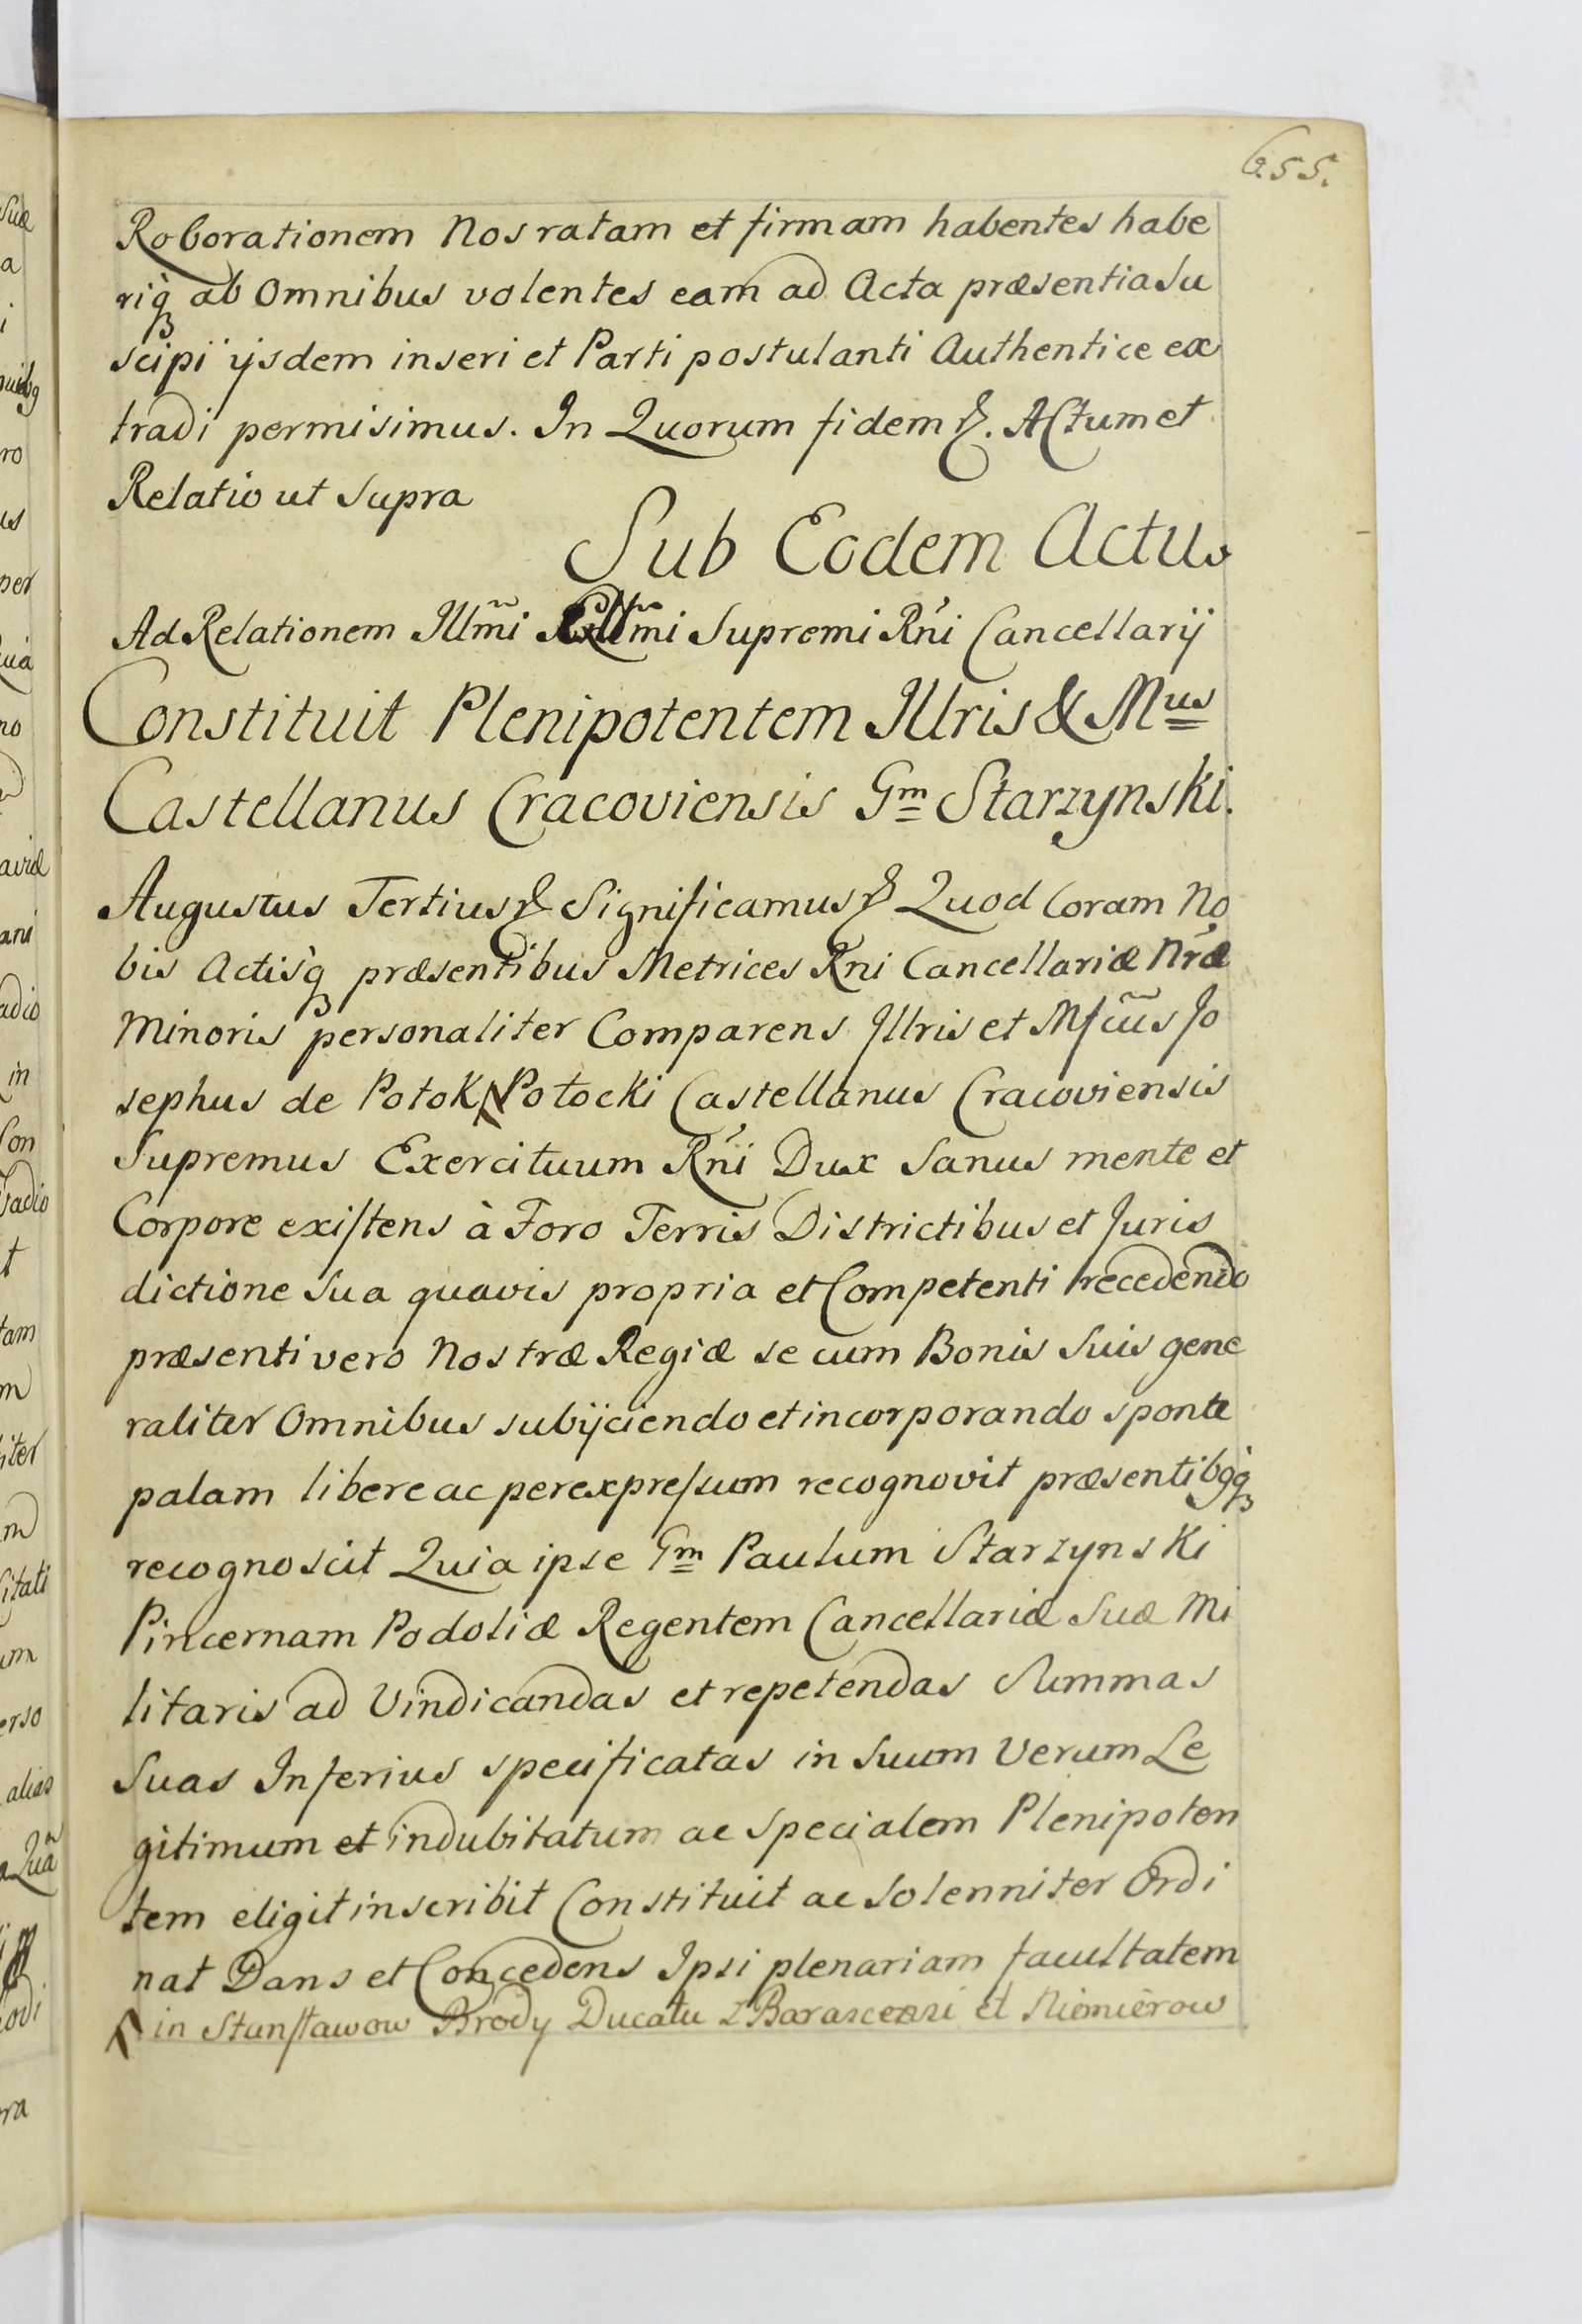 655.
Roborationem Nos ratam et firmam habentes habe
riq̀ ab Omnibus volentes eam ad Acta præsentia su
scipi ijsdem inseri et Parti postulanti Authentice ex
tradi permisimus. In Quorum fidem &. Actum et
Relatio ut supra
Sub Eodem Actu
Ad Relationem Illm̃i Exllm̃i Supremi Rńi Cancellarij
Constituit Plenipotentem Illris & Mus
Castellanus Cracoviensis Gm Starzynski.
Augustus Tertius & Significamus & Quod Coram No
bis Actisq̀ præsentibus Metrices Rni Cancellariæ Nŕæ
Minoris personaliter Comparens Illris et Mſcũs Jo
sephus de Potok Potocki Castellanus Cracoviensis
Supremus Exercituum Rńi Dux Sanus mente et
Corpore exiſtens à Foro Terris Districtibus et Juris
dictione Sua quavis propria et Competenti recedendo
præsenti vero Nostræ Regiæ se cum Bonis Suis gene
raliter Omnibus subijciendo et incorporando sponte
palam libere ac per expreſsum recognovit præsentibgq̀
recognoscit Quia ipse Gm Paulum Starzynski
Pincernam Podoliæ Regentem Cancellariæ Suæ Mi
litaris ad Vindicandas et repetendas Summas
Suas Inferius specificatas in Suum Verum Le
gitimum et indubitatum ac specialem Plenipoten
tem eligit inscribit Constituit ac Solenniter Ordi
nat Dans et Concedens Ipsi plenariam facultatem
in Stanſtawow Brody Ducatu Niemierow